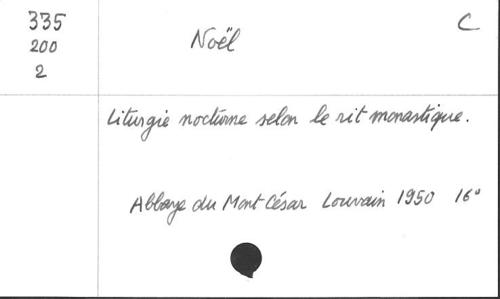 335
200
2
Noël
C
Liturgie nocturne selon le rit monastique.
Abbaye du Mont César Louvain 1950 16°